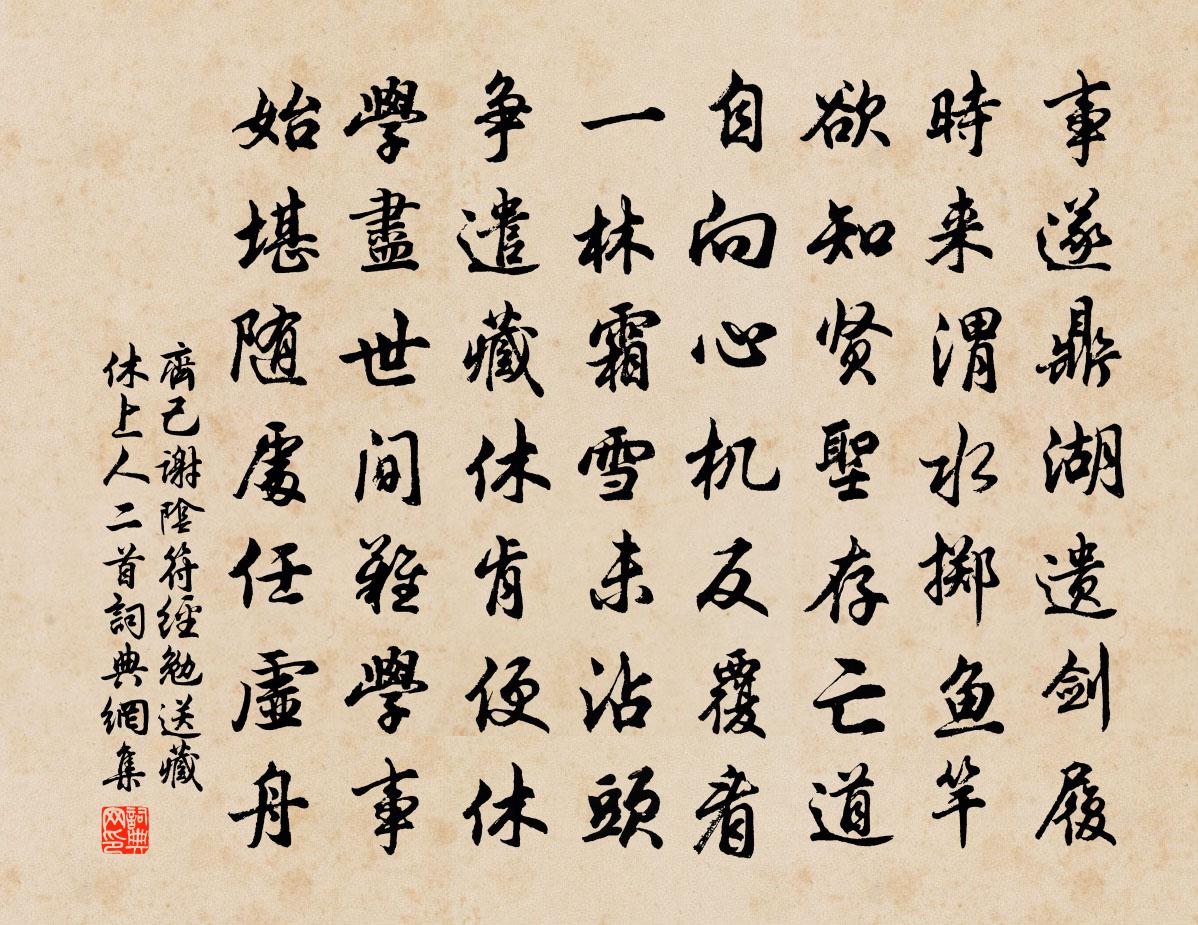 事遂鼎湖遗剑履
時来渭水掷鱼竿
欲知贤聖存亡道
自向心机反覆看
一林霜雪未沾頭
争遣藏休肯便休
學盡世间難學事
始堪随處任虛舟
齊己谢陰符經勉送藏
休上人二首詞典網集
詞典
网印